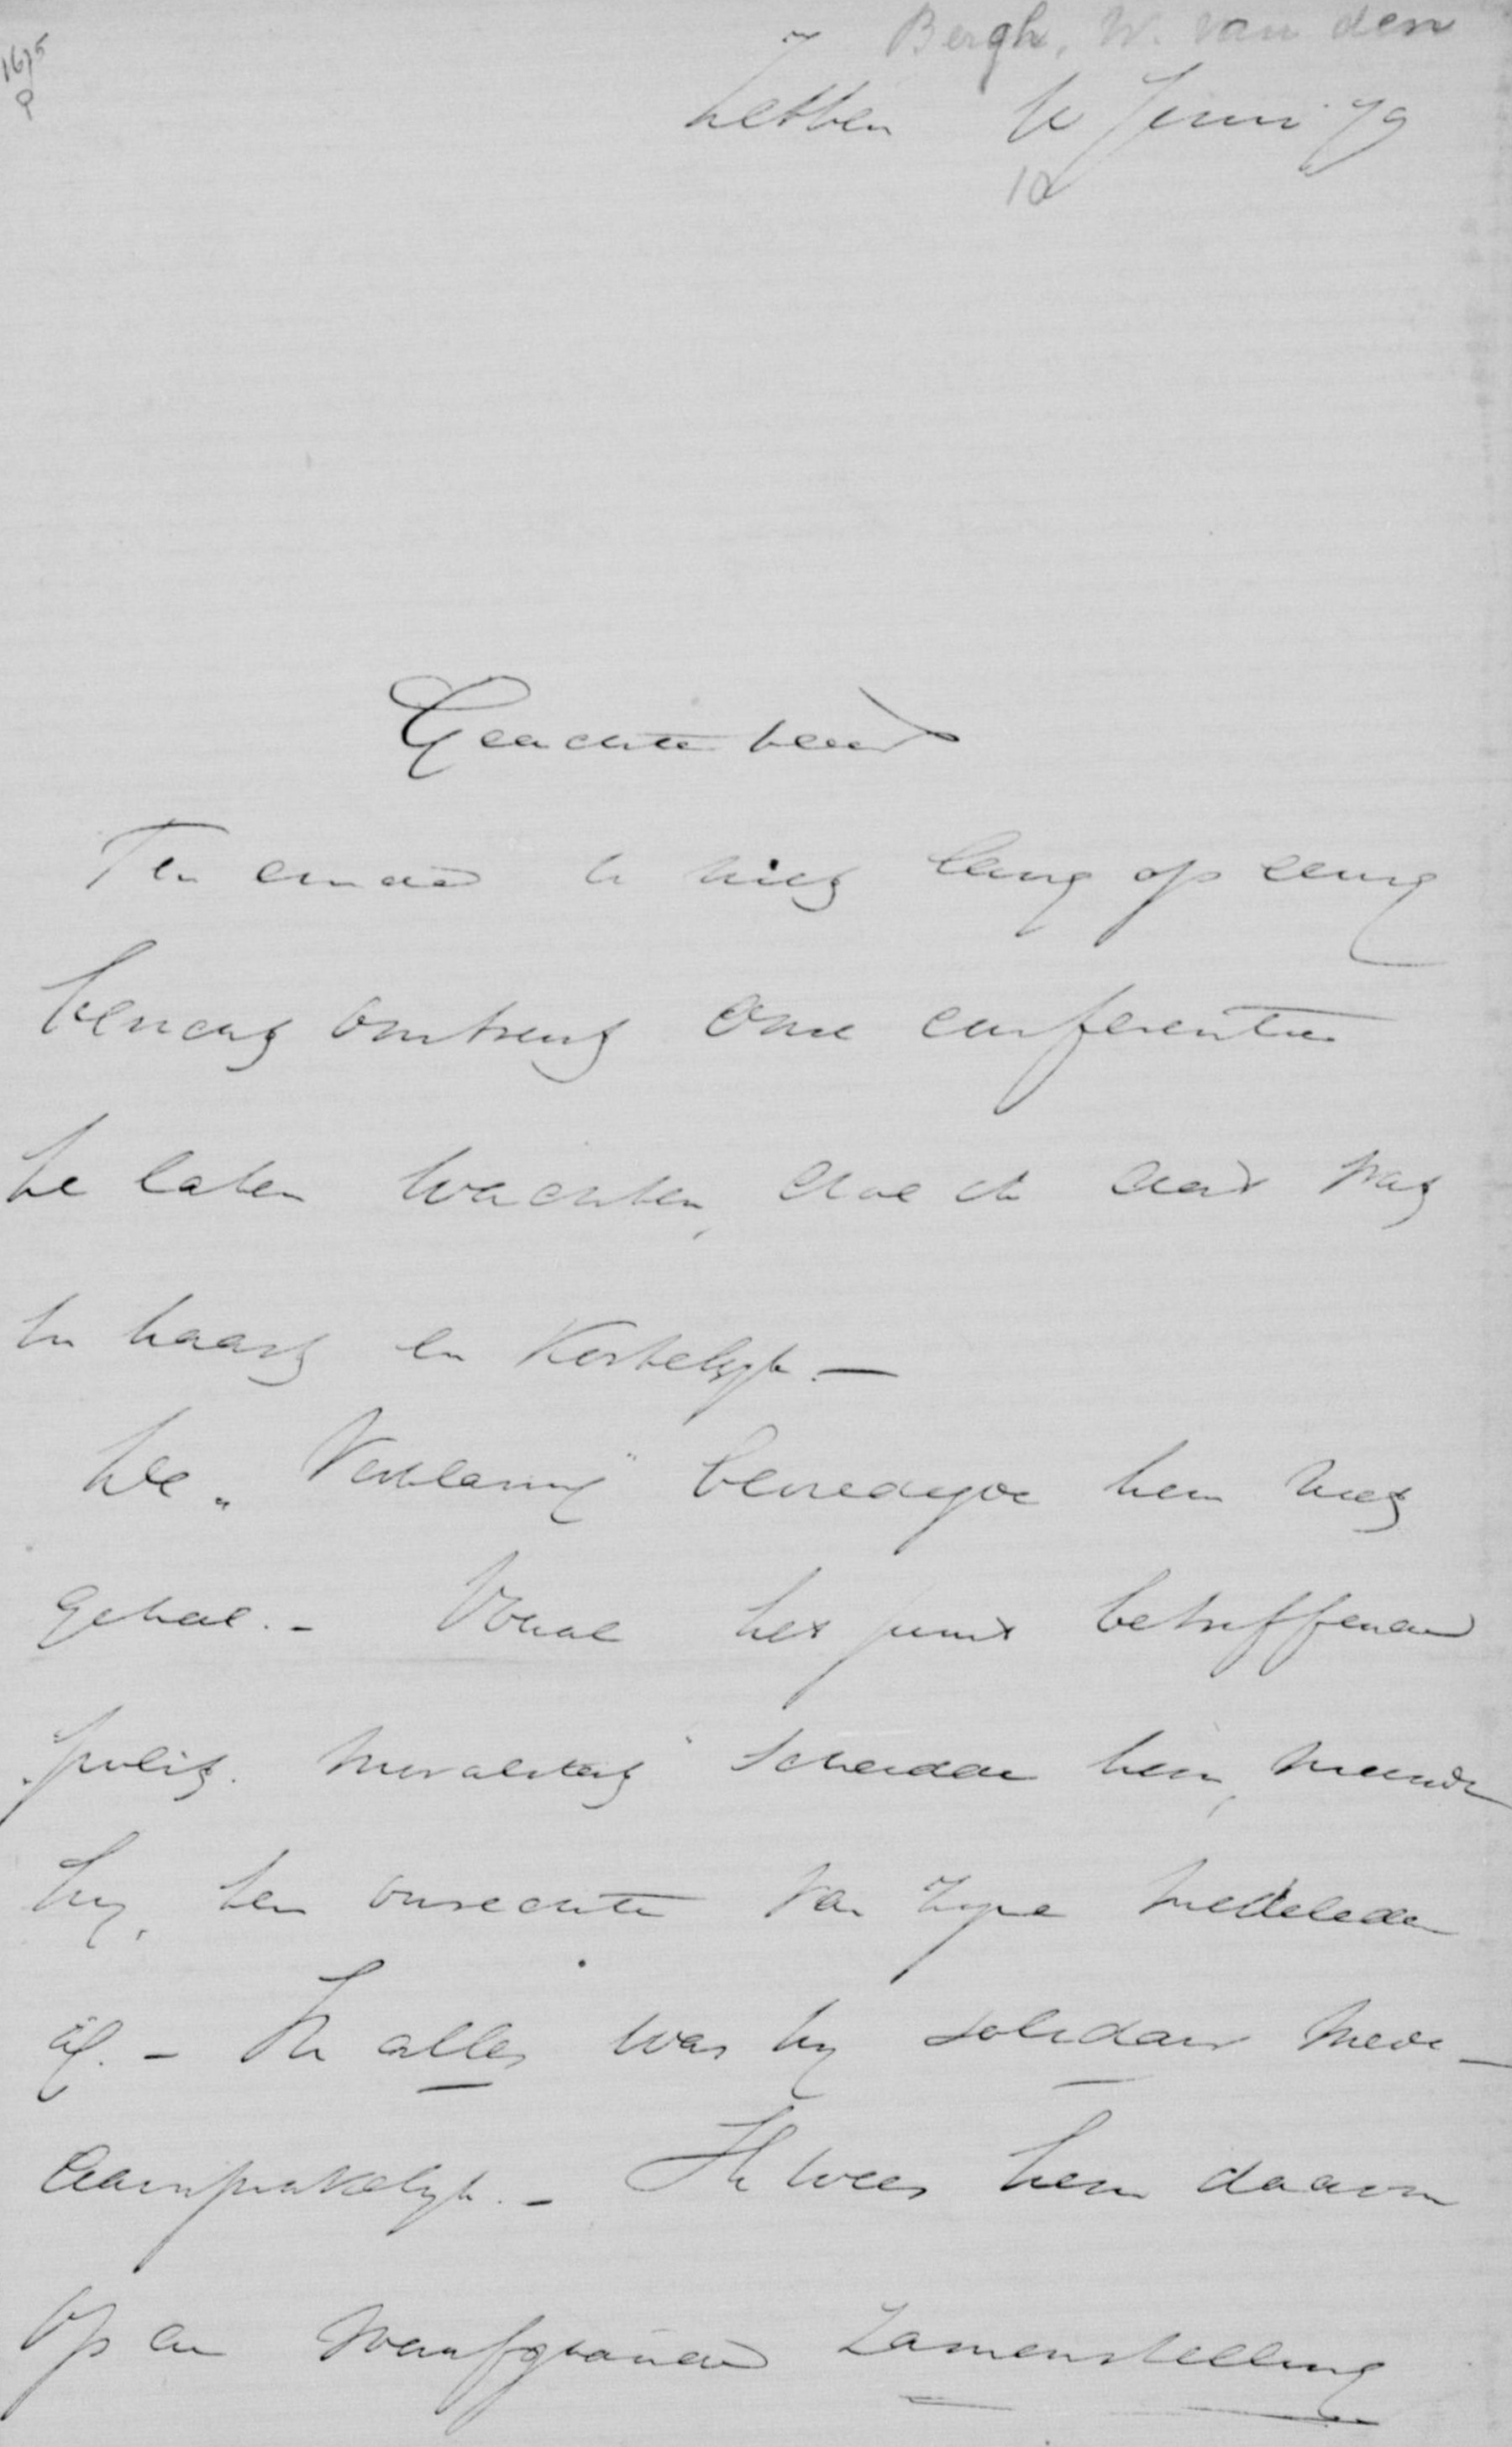 1675
Bergh, W. van den
Zetten Juni 79
10
Geachte heer
Ten einde U niet lang op eenig
bericht omtrent onze conferentie
te laten wachten, doe ik dat
in haast en kortelijk. —
De „Verklaring" bevredigde hem niet
geheel. – Vooral het punt betreffende
„polit. moraliteit" scheidde hem, meende
hij, ten onrechte van zijne medeleden
af. – In alles was hij solidair mede-
aansprakelijk. – Ik wees hem daarom
op de voorafgaande zamenstelling